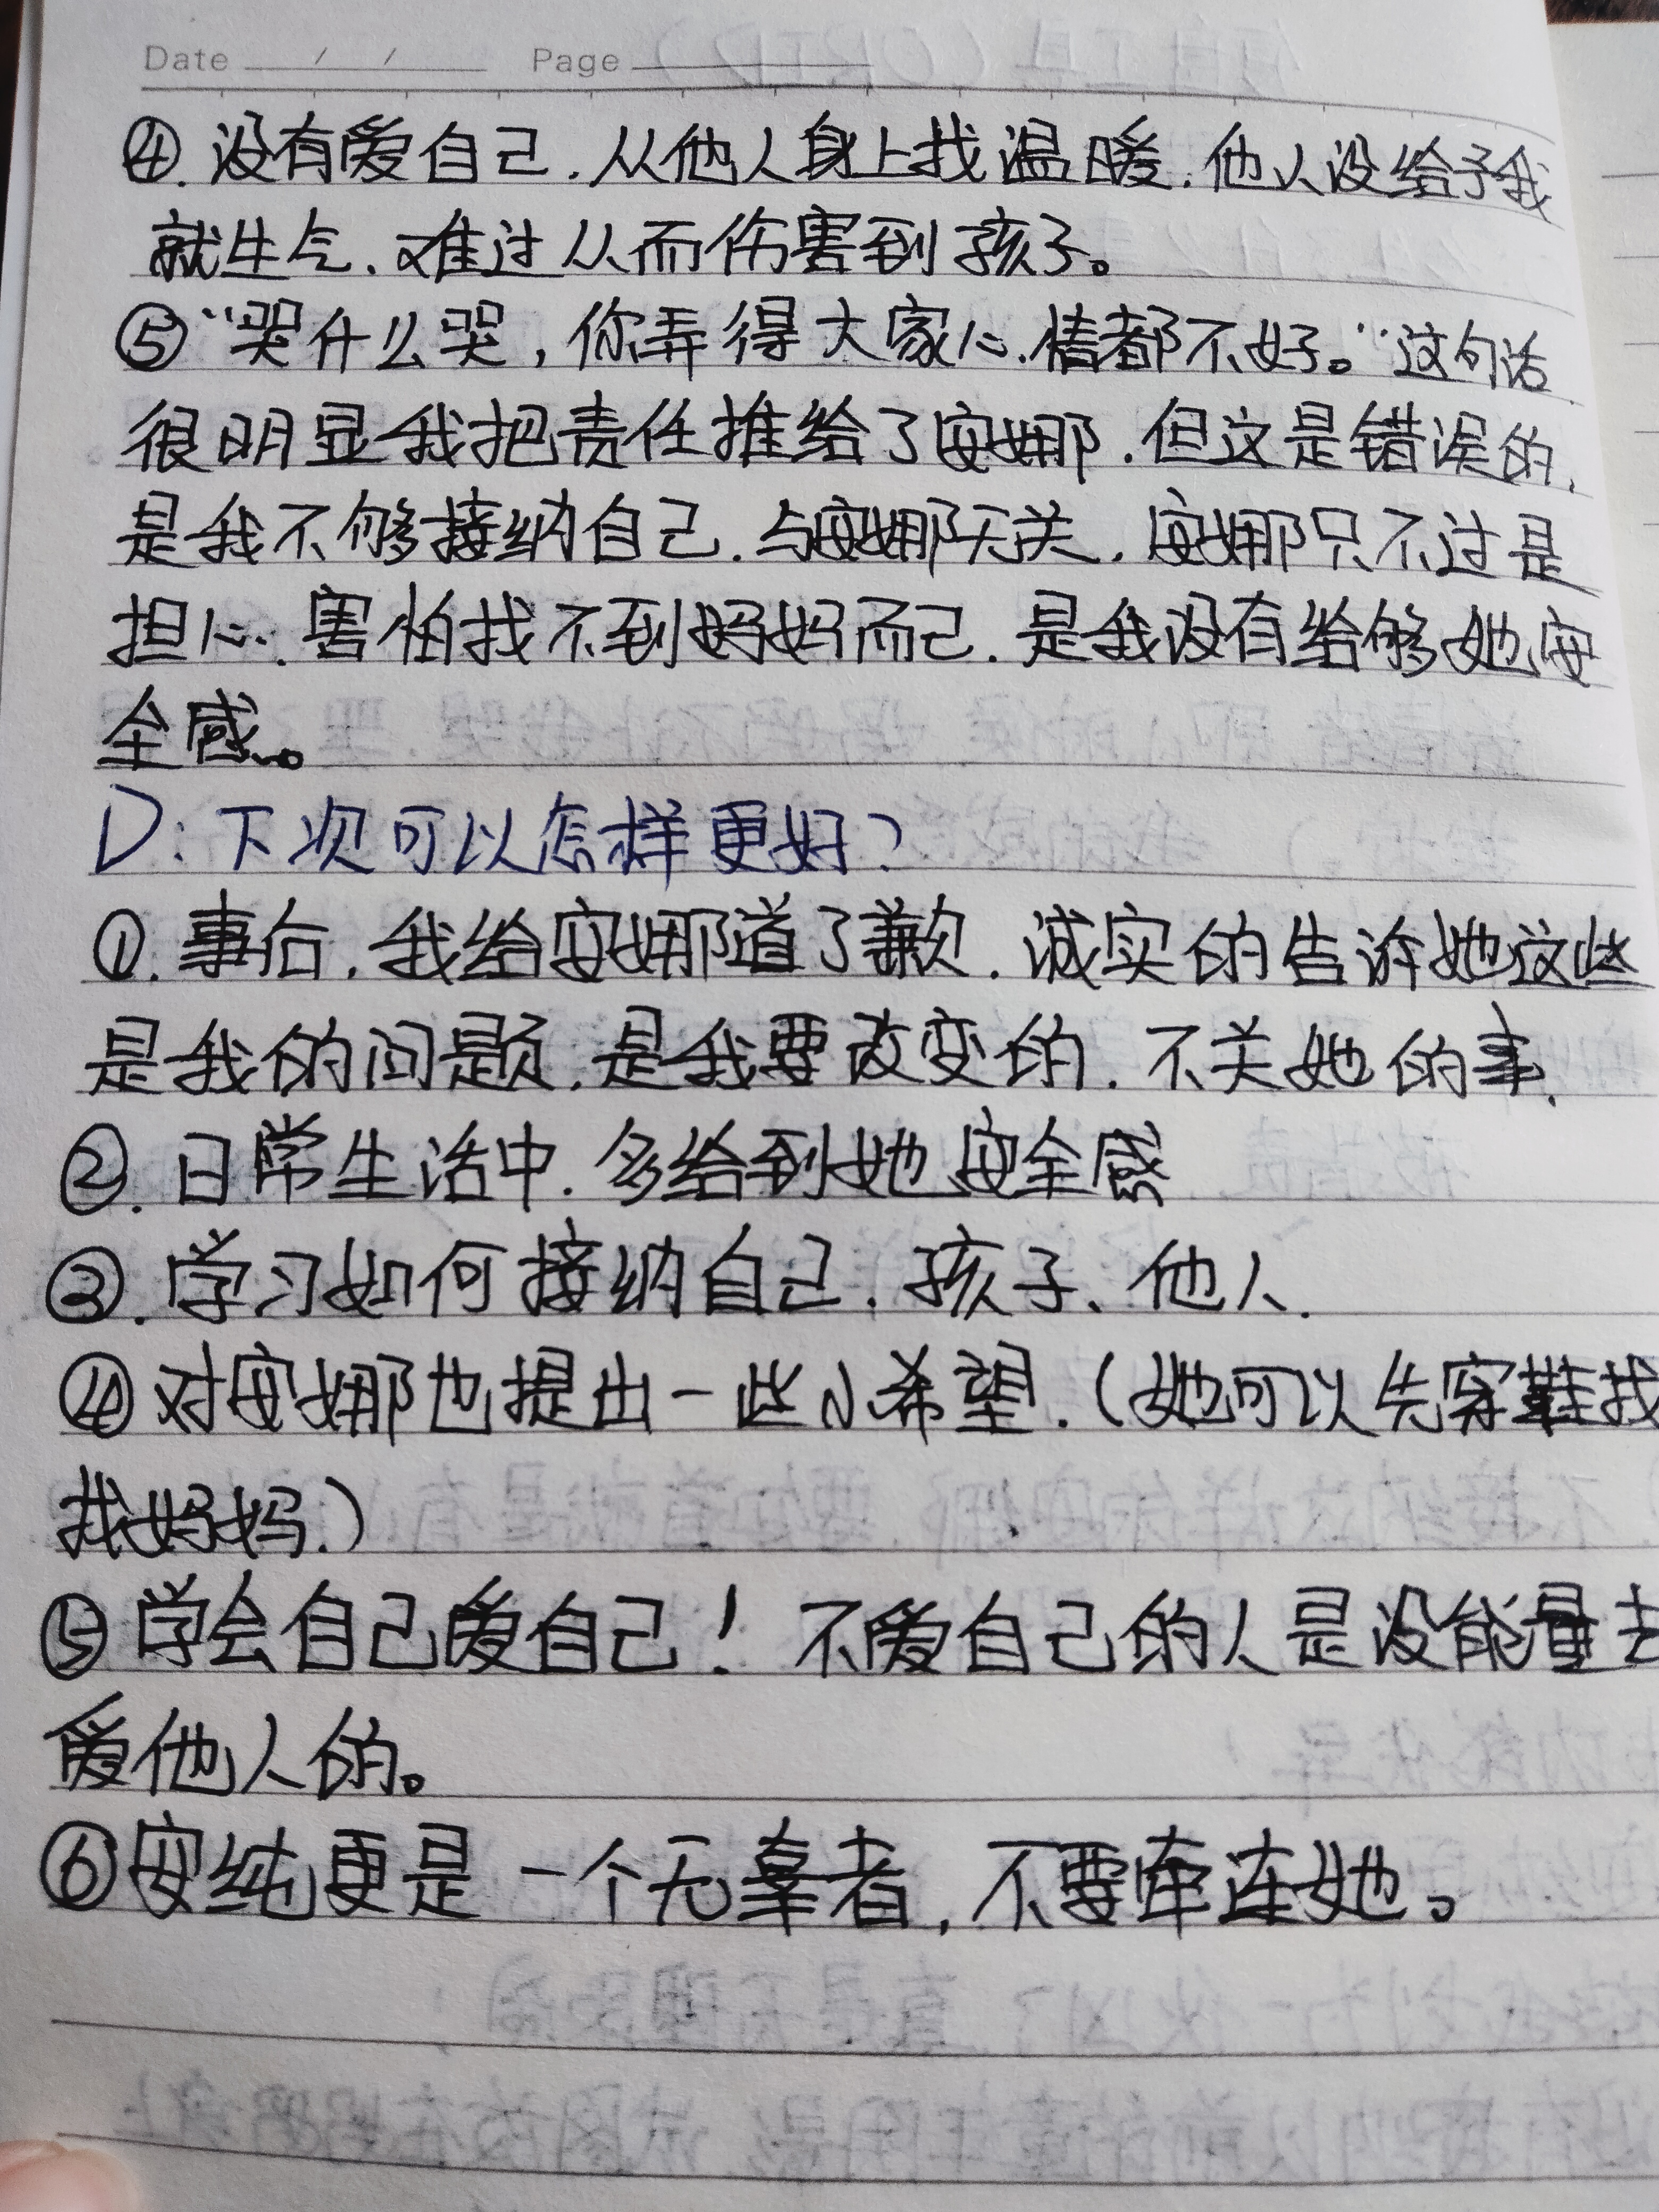 Date / / Page
④. 没有爱自己.从他人身上找温暖.他人没给予我
就生气、难过从而伤害到孩子。
⑤“哭什么哭,你弄得大家心情都不好。”这句话
很明显我把责任推给了安娜.但这是错误的,
是我不够接纳自己.与安娜无关.安娜只不过是
担心.害怕找不到妈妈而已.是我没有给够她安
全感。
D:下次可以怎样更好?
①.事后.我给安娜道了歉.诚实的告诉她这些
是我的问题.是我要改变的.不关她的事.
②.日常生活中.多给到她安全感
③.学习如何接纳自己.孩子、他人.
④对安娜也提出一些小希望.(她可以先穿鞋找
找妈妈.)
⑤学会自己爱自己!不爱自己的人是没能量去
爱他人的。
⑥安纯更是一个无辜者,不要牵连她。